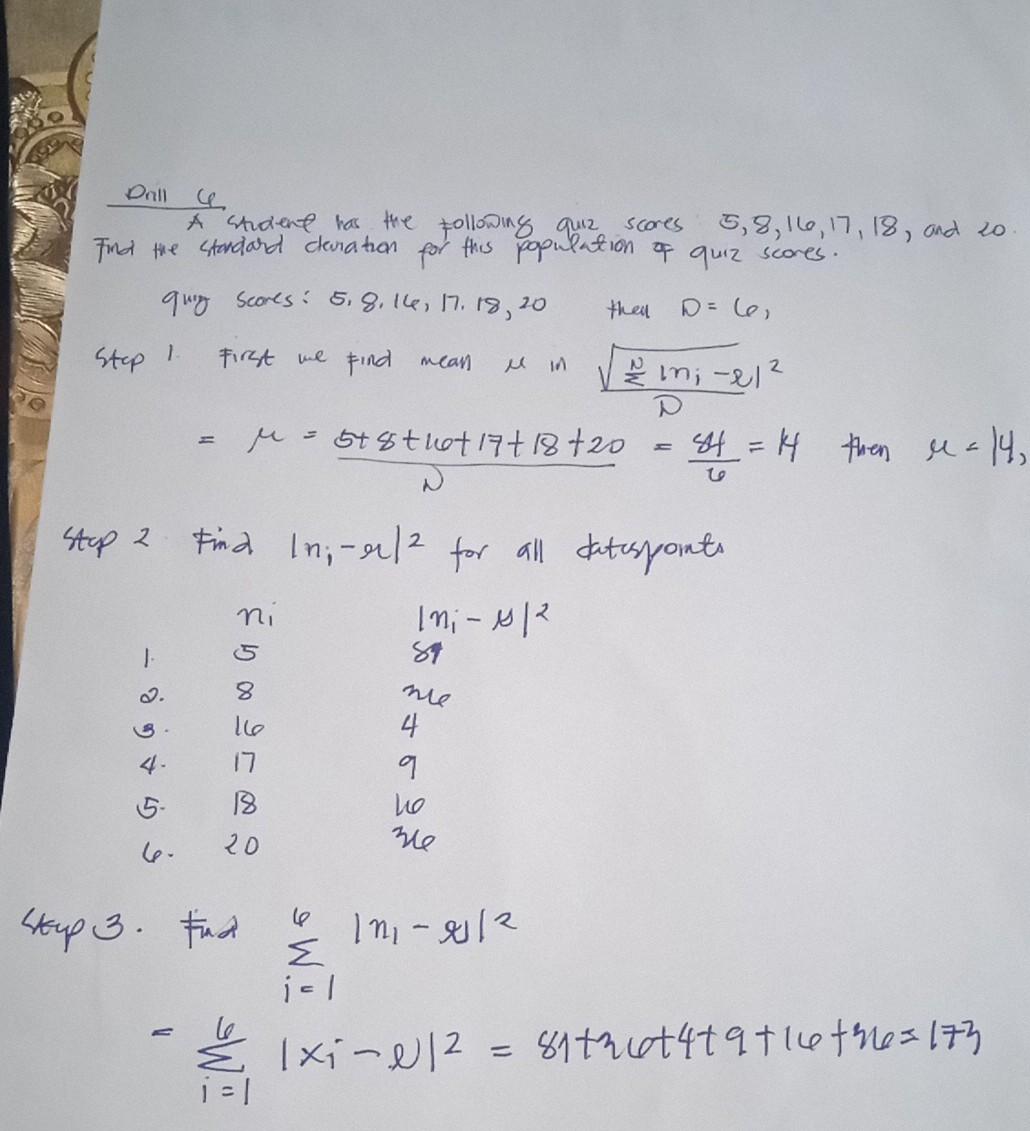 Drill 6
A student has the following quiz scores 5, 8, 16, 17, 18, and 20.
Find the standard deviation for this population of quiz scores.
quiz scores: 5, 8, 16, 17, 18, 20 then N = 6,
Step 1. First we find mean μ in √(Σ^N |x_i - μ|² / N)
= μ = (5+8+16+17+18+20)/N = 84/6 = 14 then μ = 14,
Step 2 Find |x_i - μ|² for all datapoints
x_i |x_i - μ|²
1. 5 81
2. 8 36
3. 16 4
4. 17 9
5. 18 16
6. 20 36
Step 3. Find Σ_{i=1}^{6} |x_i - μ|²
= Σ_{i=1}^{6} |x_i - μ|² = 81+36+4+9+16+36=173